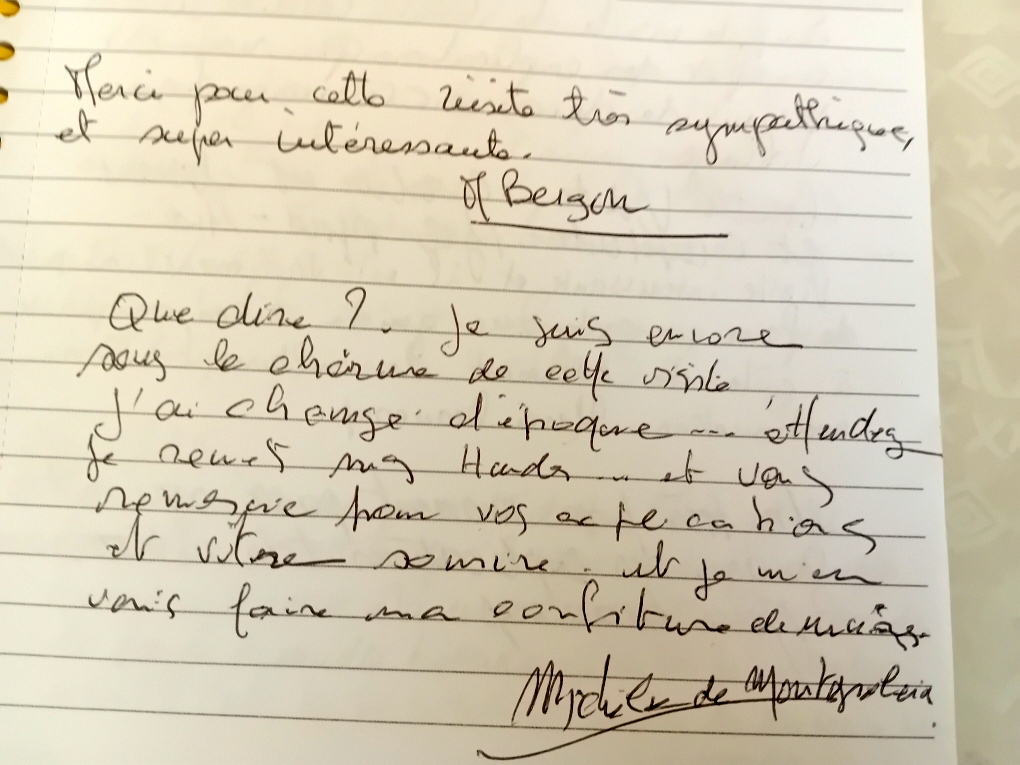 Merci pour cette visite très sympathique,
et super intéressante.
M Bergon
Que dire ?. Je suis encore
sous le charme de cette visite
J'ai changé d'époque --- attendez
Je remets mes ... et vous
remercie pour vos explications
et votre sourire. et je m'en
vais faire ma confiture de mûres.
Michèle de